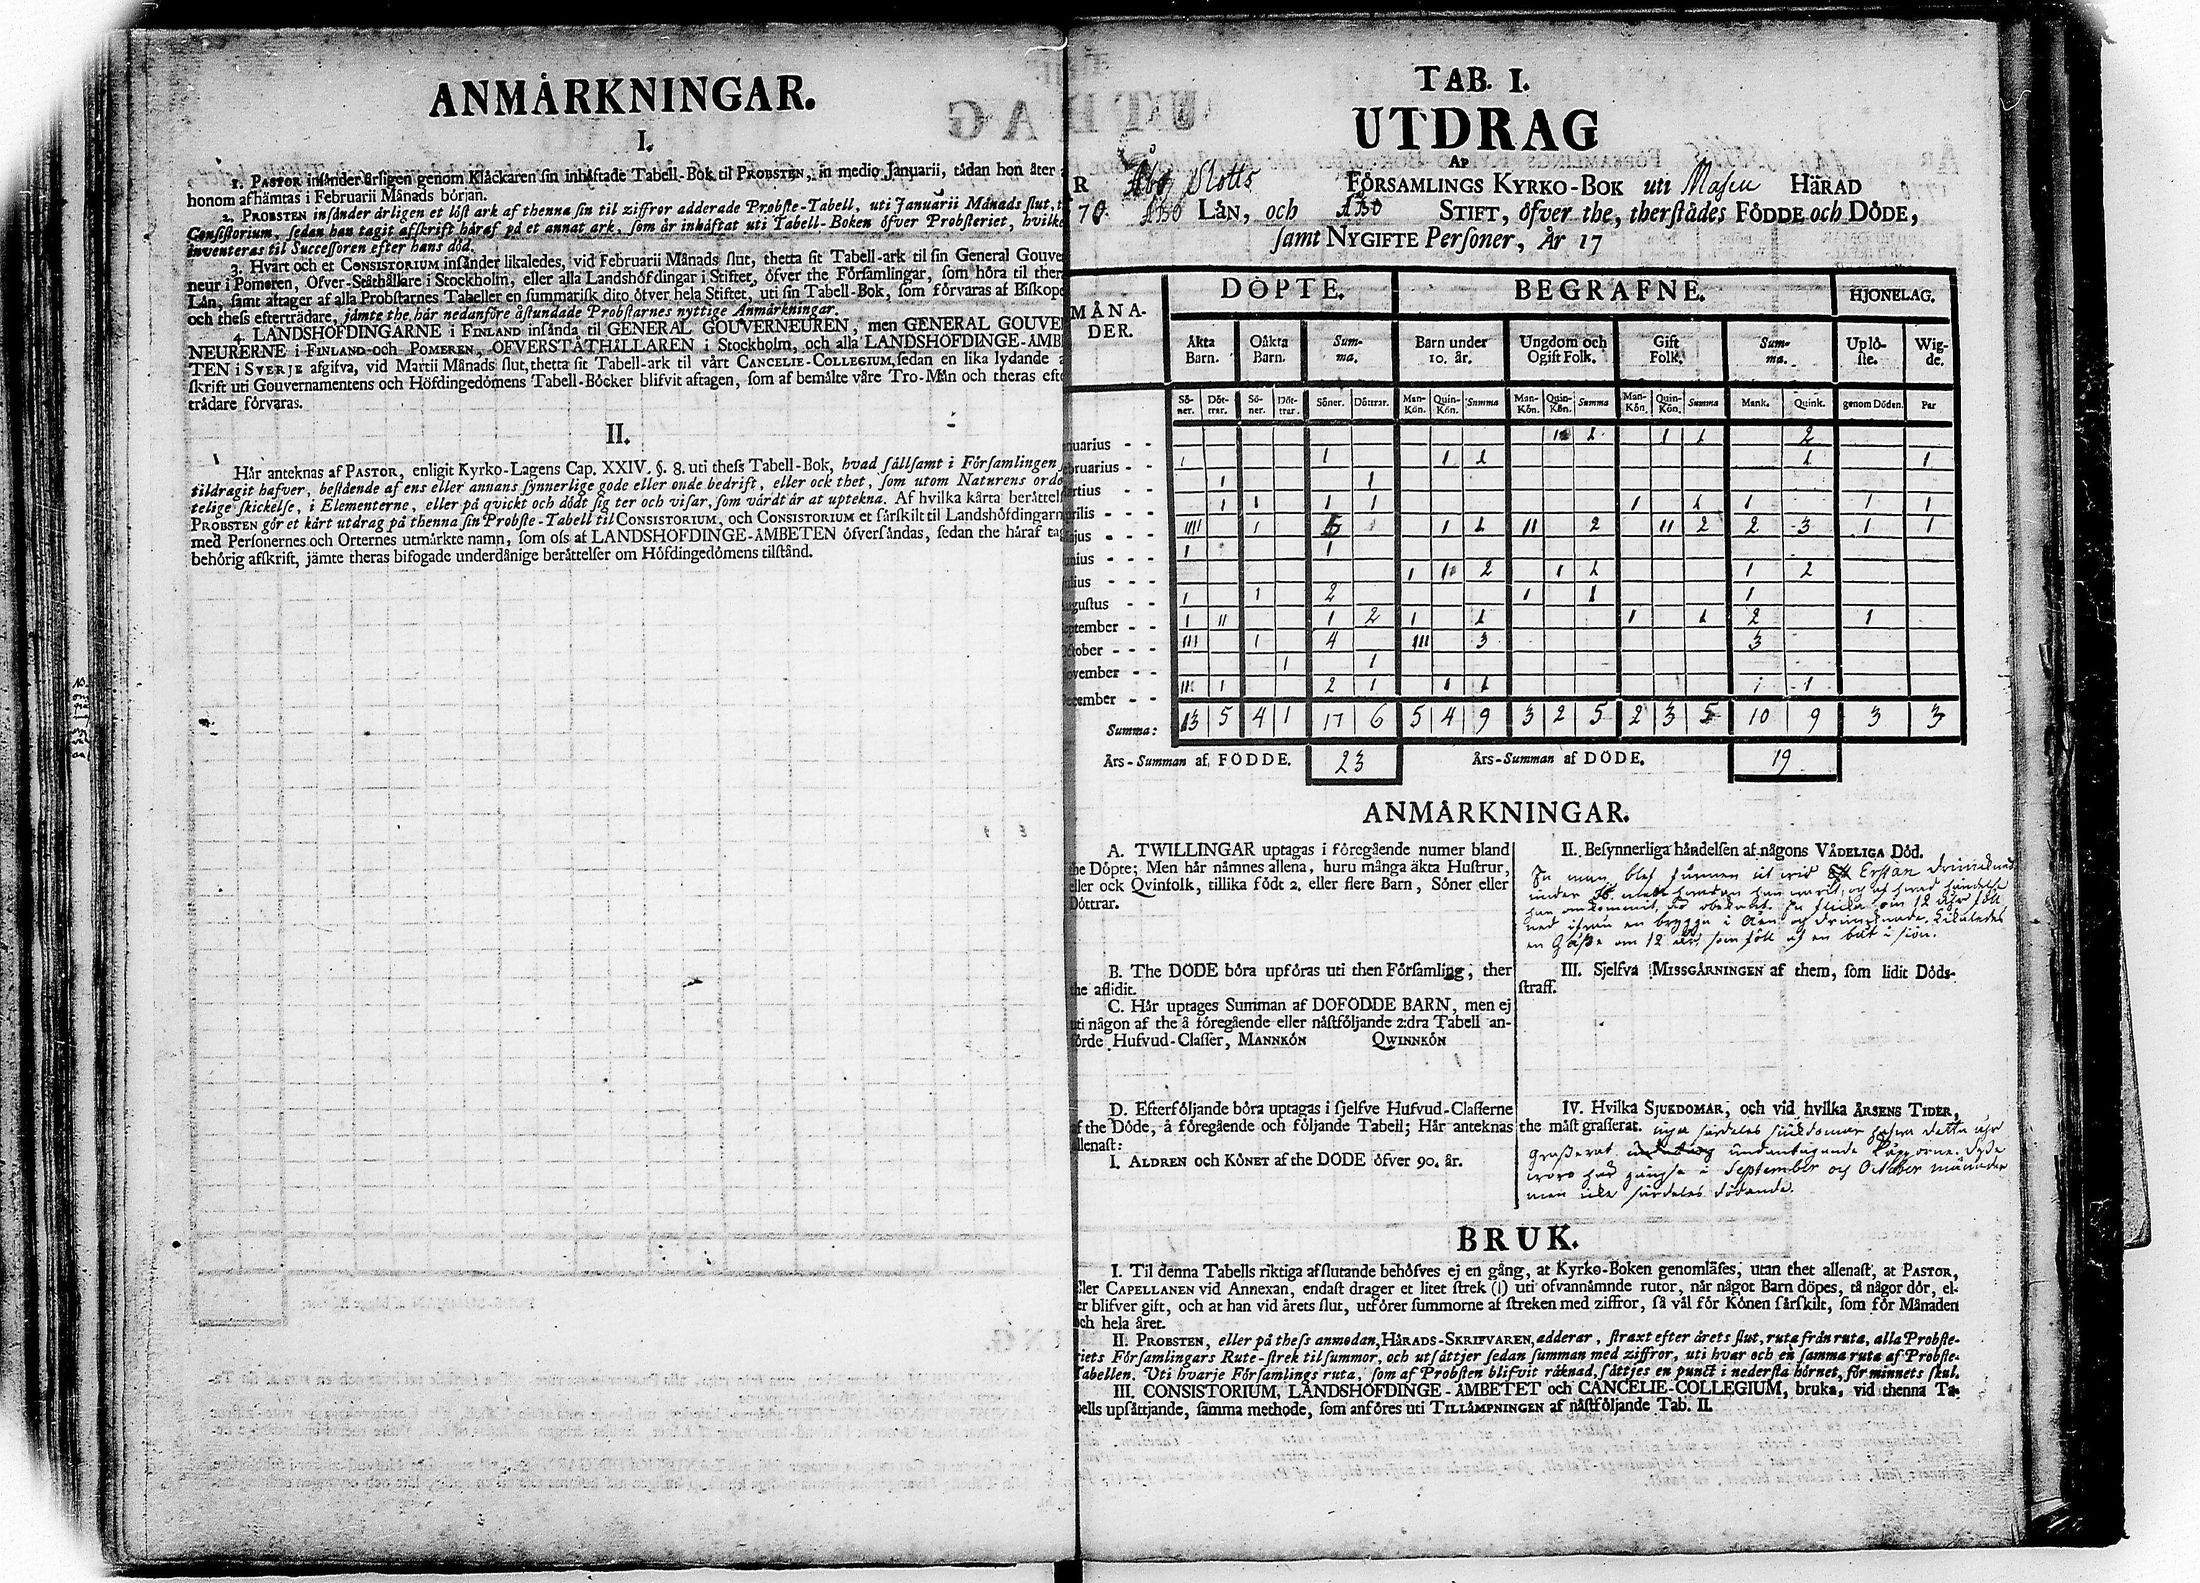 ANMÅRKNINGAR.
I.
1. PASTOR insånder årligen genom Klåckaren sin inhåftade Tabell-Bok til PROBSTEN, in medio Januarii, tådan hon åter
honom afhåmtas i Februarii Månads början.
2. PROBSTEN insånder årligen et löst ark af thenna sin til ziffror adderade Probste-Tabell, uti Januarii Månads slut, t
Consistorium, sedan han tagit afskrift håraf på et annat ark, som år inhåftat uti Tabell-Boken öfver Probsteriet, hvilke
inventeras til Successoren efter hans död.
3. Hvart och et CONSISTORIUM insånder likaledes, vid Februarii Månads slut, thetta sit Tabell-ark til sin General Gouve
neur i Pomeren, Öfver-Ståthållare i Stockholm, eller alla Landshöfdingar i Stiftet, öfver the Församlingar, som höra til ther
Lån, samt aftager af alla Probstarnes Tabeller en summarisk dito öfver hela Stiftet, uti sin Tabell-Bok, som förvaras af Biskope
och thess eftertrådare, jåmte the hår nedanföre åstundade Probstarnes nyttige Anmårkningar.
4. LANDSHÖFDINGARNE i FINLAND insånda til GENERAL GOUVERNEUREN, men GENERAL GOUVE
NEURERNE i FINLAND och POMEREN, ÖFVERSTÅTHÅLLAREN i Stockholm, och alla LANDSHÖFDINGE-ÅMB
TEN i SVERJE afgifva, vid Martii Månads slut, thetta sit Tabell-ark til vårt CANCELIE-COLLEGIUM, sedan en lika lydande a
skrift uti Gouvernamentens och Höfdingedömens Tabell-Böcker blifvit aftagen, som af bemålte våre Tro-Mån och theras efte
trådare förvaras.
II.
Hår anteknas af PASTOR, enligit Kyrko-Lagens Cap. XXIV. §. 8. uti thess Tabell-Bok, hvad sållsamt i Församlingen
tildragit hafver, bestående af ens eller annans synnerlige gode eller onde bedrift, eller ock thet, som utom Naturens orde
telige skickelse, i Elementerne, eller på qvickt och dödt sig ter och visar, som vårdt år at uptekna. Af hvilka kårta beråttels
PROBSTEN gör et kårt utdrag på thenna sin Probste-Tabell til CONSISTORIUM, och CONSISTORIUM et sårskilt til Landshöfdingarn
med Personernes och Orternes utmårkte namn, som oss af LANDSHÖFDINGE-ÅMBETEN öfversåndas, sedan the håraf tag
behörig afskrift, jåmte theras bifogade underdånige beråttelser om Höfdingedömens tilstånd.
TAB. I.
UTDRAG
AF
R Åbo Slotts FÖRSAMLINGS KYRKO-BOK uti Masku HÄRAD
70 Åbo LÄN, och Åbo STIFT, öfver the, therstådes FÖDDE och DÖDE,
samt NYGIFTE Personer, År 17
MÅNA- DÖPTE. BEGRAFNE. HJONELAG.
DER.
Åkta Oåkta Sum- Barn under Ungdom och Gift Sum- Uplö- Wig-
Barn. Barn. ma. 10. år. Ogift Folk. Folk. ma. ste. de.
Sö- Döt- Sö- Döt- Söner. Döttrar. Man- Quin- Summa Man- Quin- Summa Man- Quin- Summa Mank. Quink. genom Döden. Par
ner. trar. ner. trar. Kön. Kön. Kön. Kön. Kön. Kön.
nuarius - - 1 1 1 1 2
ebruarius - - 1 1 1 1 1 1
artius - - - 1 1
prilis - - - 1 1 1 1 1 1 1 1 1
ajus - - - IIII 1 5 1 1 II 2 II 2 2 3 1 1
unius - - - 1 1
ulius - - - 1 1 2 1 1 1 2
ugustus - - 1 1 2 1 1 1
eptember - - 1 II 1 2 1 1 1 1 2 1
ctober - - - III 1 4 III 3 3
ovember - - 1 1
ecember - - III 1 2 1 1 1 1 1
Summa: 13 5 4 1 17 6 5 4 9 3 2 5 2 3 5 10 9 3 3
Års-Summan af FÖDDE. 23 Års-Summan af DÖDE. 19
ANMÅRKNINGAR.
A. TWILLINGAR uptagas i föregående numer bland
the Döpte; Men hår nåmnes allena, huru många åkta Hustrur,
eller ock Qvinfolk, tillika födt 2, eller flere Barn, Söner eller
Döttrar.
B. The DÖDE böra upföras uti then Församling, ther
the aflidit.
C. Hår uptages Summan af DÖFÖDDE BARN, men ej
uti någon af the å föregående eller nåstföljande 2:dra Tabell an-
förde Hufvud-Classer, MANNKÖN QWINNKÖN
D. Efterföljande böra uptagas i sjelfve Hufvud-Classerne
af the Döde, å föregående och följande Tabell; Hår anteknas
allenast:
I. ÅLDREN och KÖNET af the DÖDE öfver 90. år.
II. Besynnerliga håndelsen af någons VÅDELIGA Död.
En man blef funnen ut vid Erstan drunknad
han omkommit, är obekant. En flicka om 12 åhr föll
ned ifrån en brygga i åen og drunknade. Likaledes
en Gåsse om 12 åhr som föll af en båt i siön.
III. Sjelfva MISSGÅRNINGEN af them, som lidit Döds-
straff.
IV. Hvilka SJUKDOMAR, och vid hvilka ÅRSENS TIDER,
the måst grasserat. inga särdeles siukdomar hafva detta åhr
Grasserat undantagande Kopporne. desse
voro här gängse i September og October månader
men icke särdeles dödande.
BRUK.
I. Til denna Tabells riktiga afslutande behöfves ej en gång, at Kyrko-Boken genomlåses, utan thet allenast, at PASTOR,
eller CAPELLANEN vid Annexan, endast drager et litet strek (|) uti ofvannåmnde rutor, når något Barn döpes, tå någor dör, el-
er blifver gift, och at han vid årets slut, utförer summorne af streken med ziffror, så vål för Könen sårskilt, som för Månaden
och hela året.
II. PROBSTEN, eller på thess anmodan, HÅRADS-SKRIFVAREN, adderar, straxt efter årets slut, ruta från ruta, alla Probste-
riets Församlingars Rute-strek til summor, och utsåttjer sedan summan med ziffror, uti hvar och en samma ruta af Probste-
Tabellen. Uti hvarje Församlings ruta, som af Probsten blifvit råknad, såttjes en punct i nedersta hörnet, för minnets skul.
III. CONSISTORIUM, LANDSHÖFDINGE-ÅMBETET och CANCELIE-COLLEGIUM, bruka, vid thenna Ta-
bells upsåttjande, samma methode, som anföres uti TILLÅMPNINGEN af nåstföljande Tab. II.